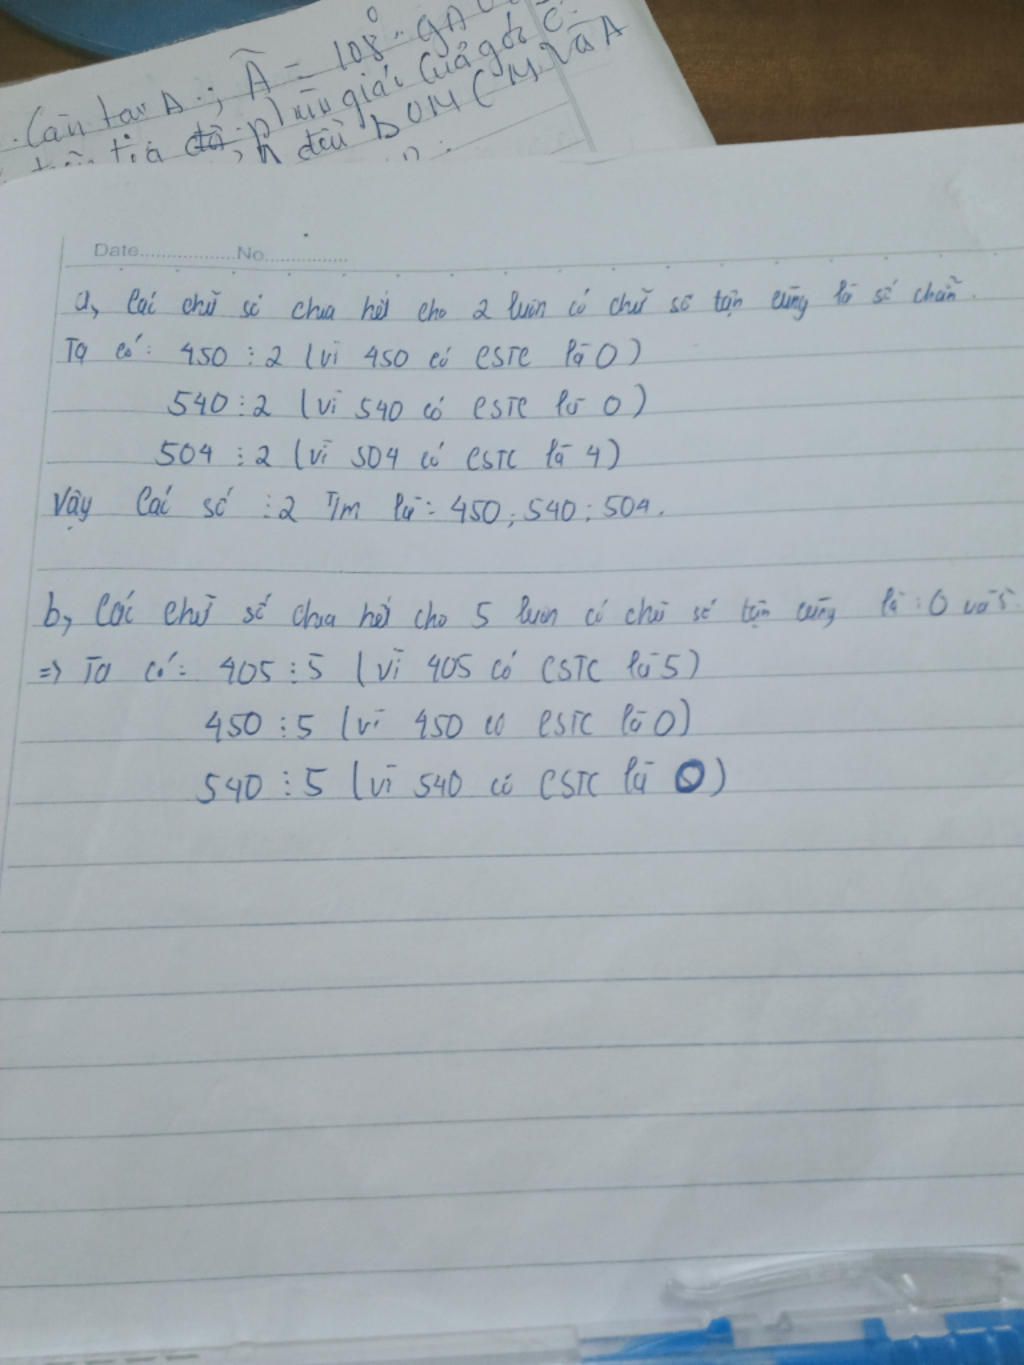 Cân tại A; Â = 108°. gọi
tia phân giác của góc C.
đều BOM (M và A
Date..................No................
a, Các chữ số chia hết cho 2 luôn có chữ số tận cùng là số chẵn.
Ta có: 450 ⋮ 2 (vì 450 có CSTC là 0)
540 ⋮ 2 (vì 540 có CSTC là 0)
504 ⋮ 2 (vì 504 có CSTC là 4)
Vậy các số ⋮ 2 Tm là: 450; 540; 504.
b, Các chữ số chia hết cho 5 luôn có chữ số tận cùng là: 0 và 5.
=> Ta có: 405 ⋮ 5 (vì 405 có CSTC là 5)
450 ⋮ 5 (vì 450 có CSTC là 0)
540 ⋮ 5 (vì 540 có CSTC là 0)